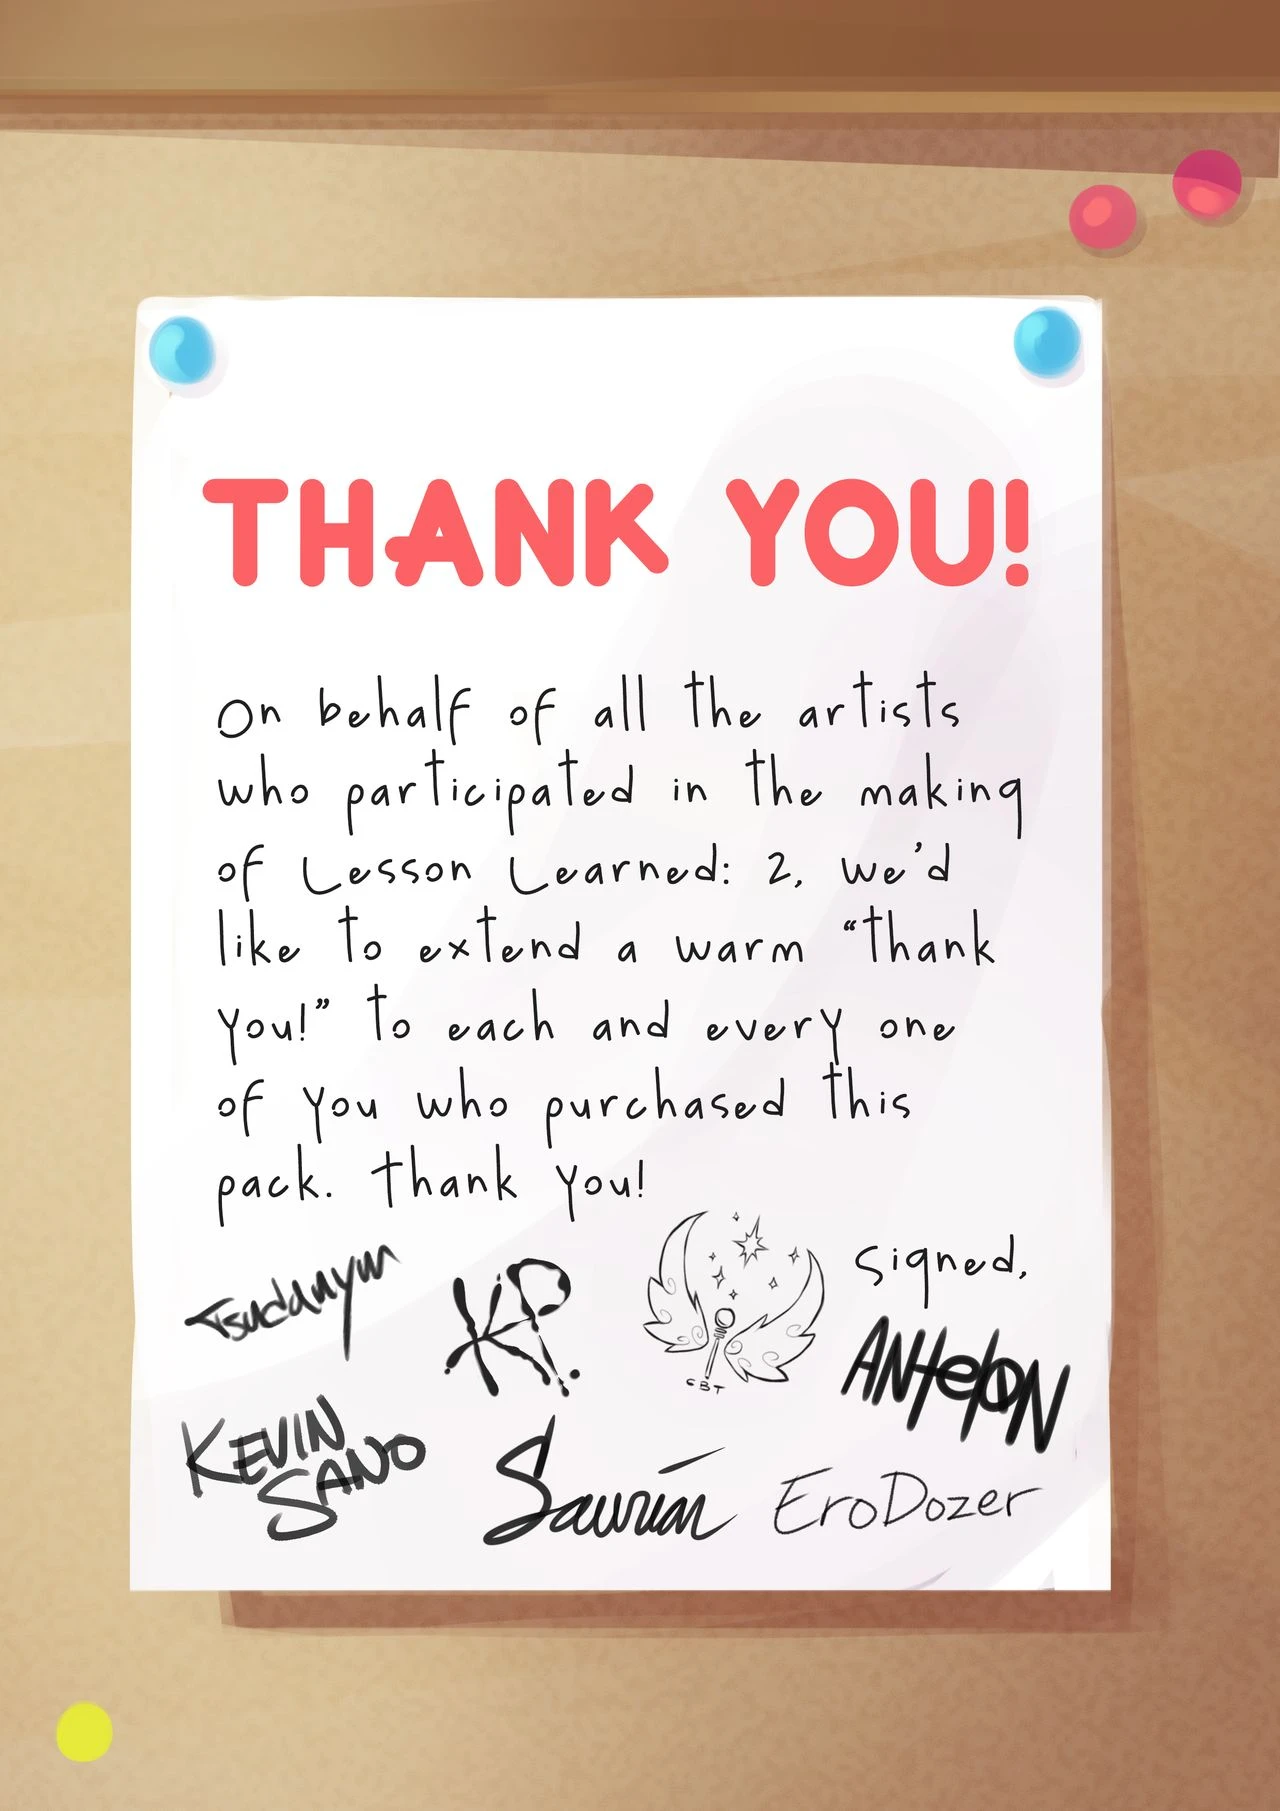 THANK YOU!
On behalf of all the artists
who participated in the making
of Lesson Learned: 2, we'd
like to extend a warm “thank
you!” to each and every one
of you who purchased this
pack. Thank you!
signed,
Tsudanym
KP.
CBT
ANtelON
KEVIN
SANO
Saurian
EroDozer